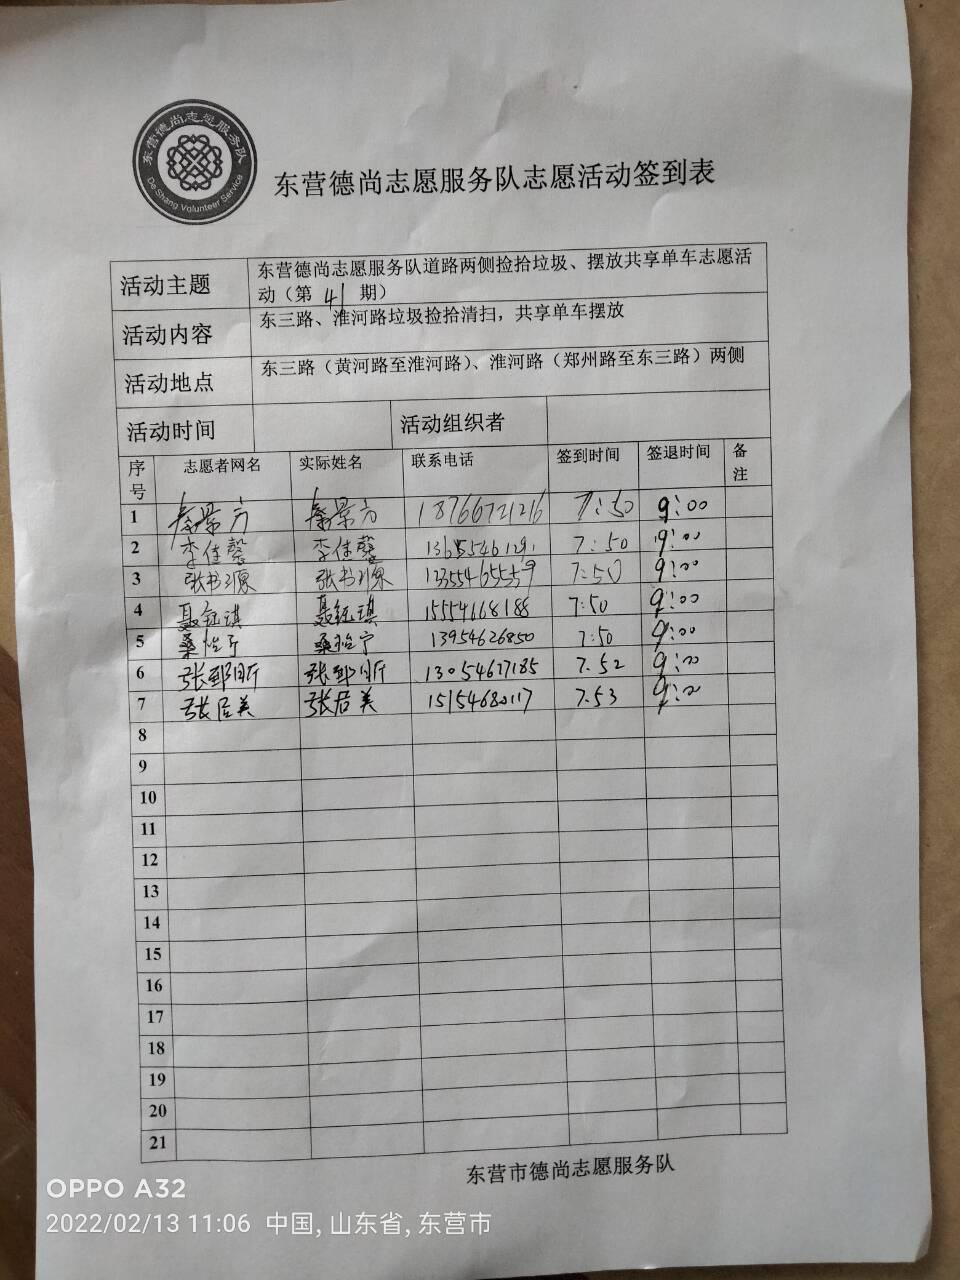 东营德尚志愿服务队
De Shang Volunteer Service
东营德尚志愿服务队志愿活动签到表
活动主题 东营德尚志愿服务队道路两侧捡拾垃圾、摆放共享单车志愿活
动（第 41 期）
活动内容 东三路、淮河路垃圾捡拾清扫，共享单车摆放
活动地点 东三路（黄河路至淮河路）、淮河路（郑州路至东三路）两侧
活动时间 活动组织者
序号 志愿者网名 实际姓名 联系电话 签到时间 签退时间 备注
1 秦景方 秦景方 18766721216 7:50 9:00
2 李佳馨 李佳馨 7:50 9:00
3 张书源 张书源 7:50 9:00
4 聂钰琪 聂钰琪 15554668188 7:50 9:00
5 桑怡宁 桑怡宁 13954626850 7:50 9:00
6 张郅昕 张郅昕 13054677185 7.52 9:00
7 张居美 张居美 7.53 9:00
8
9
10
11
12
13
14
15
16
17
18
19
20
21
东营市德尚志愿服务队
OPPO A32
2022/02/13 11:06 中国, 山东省, 东营市